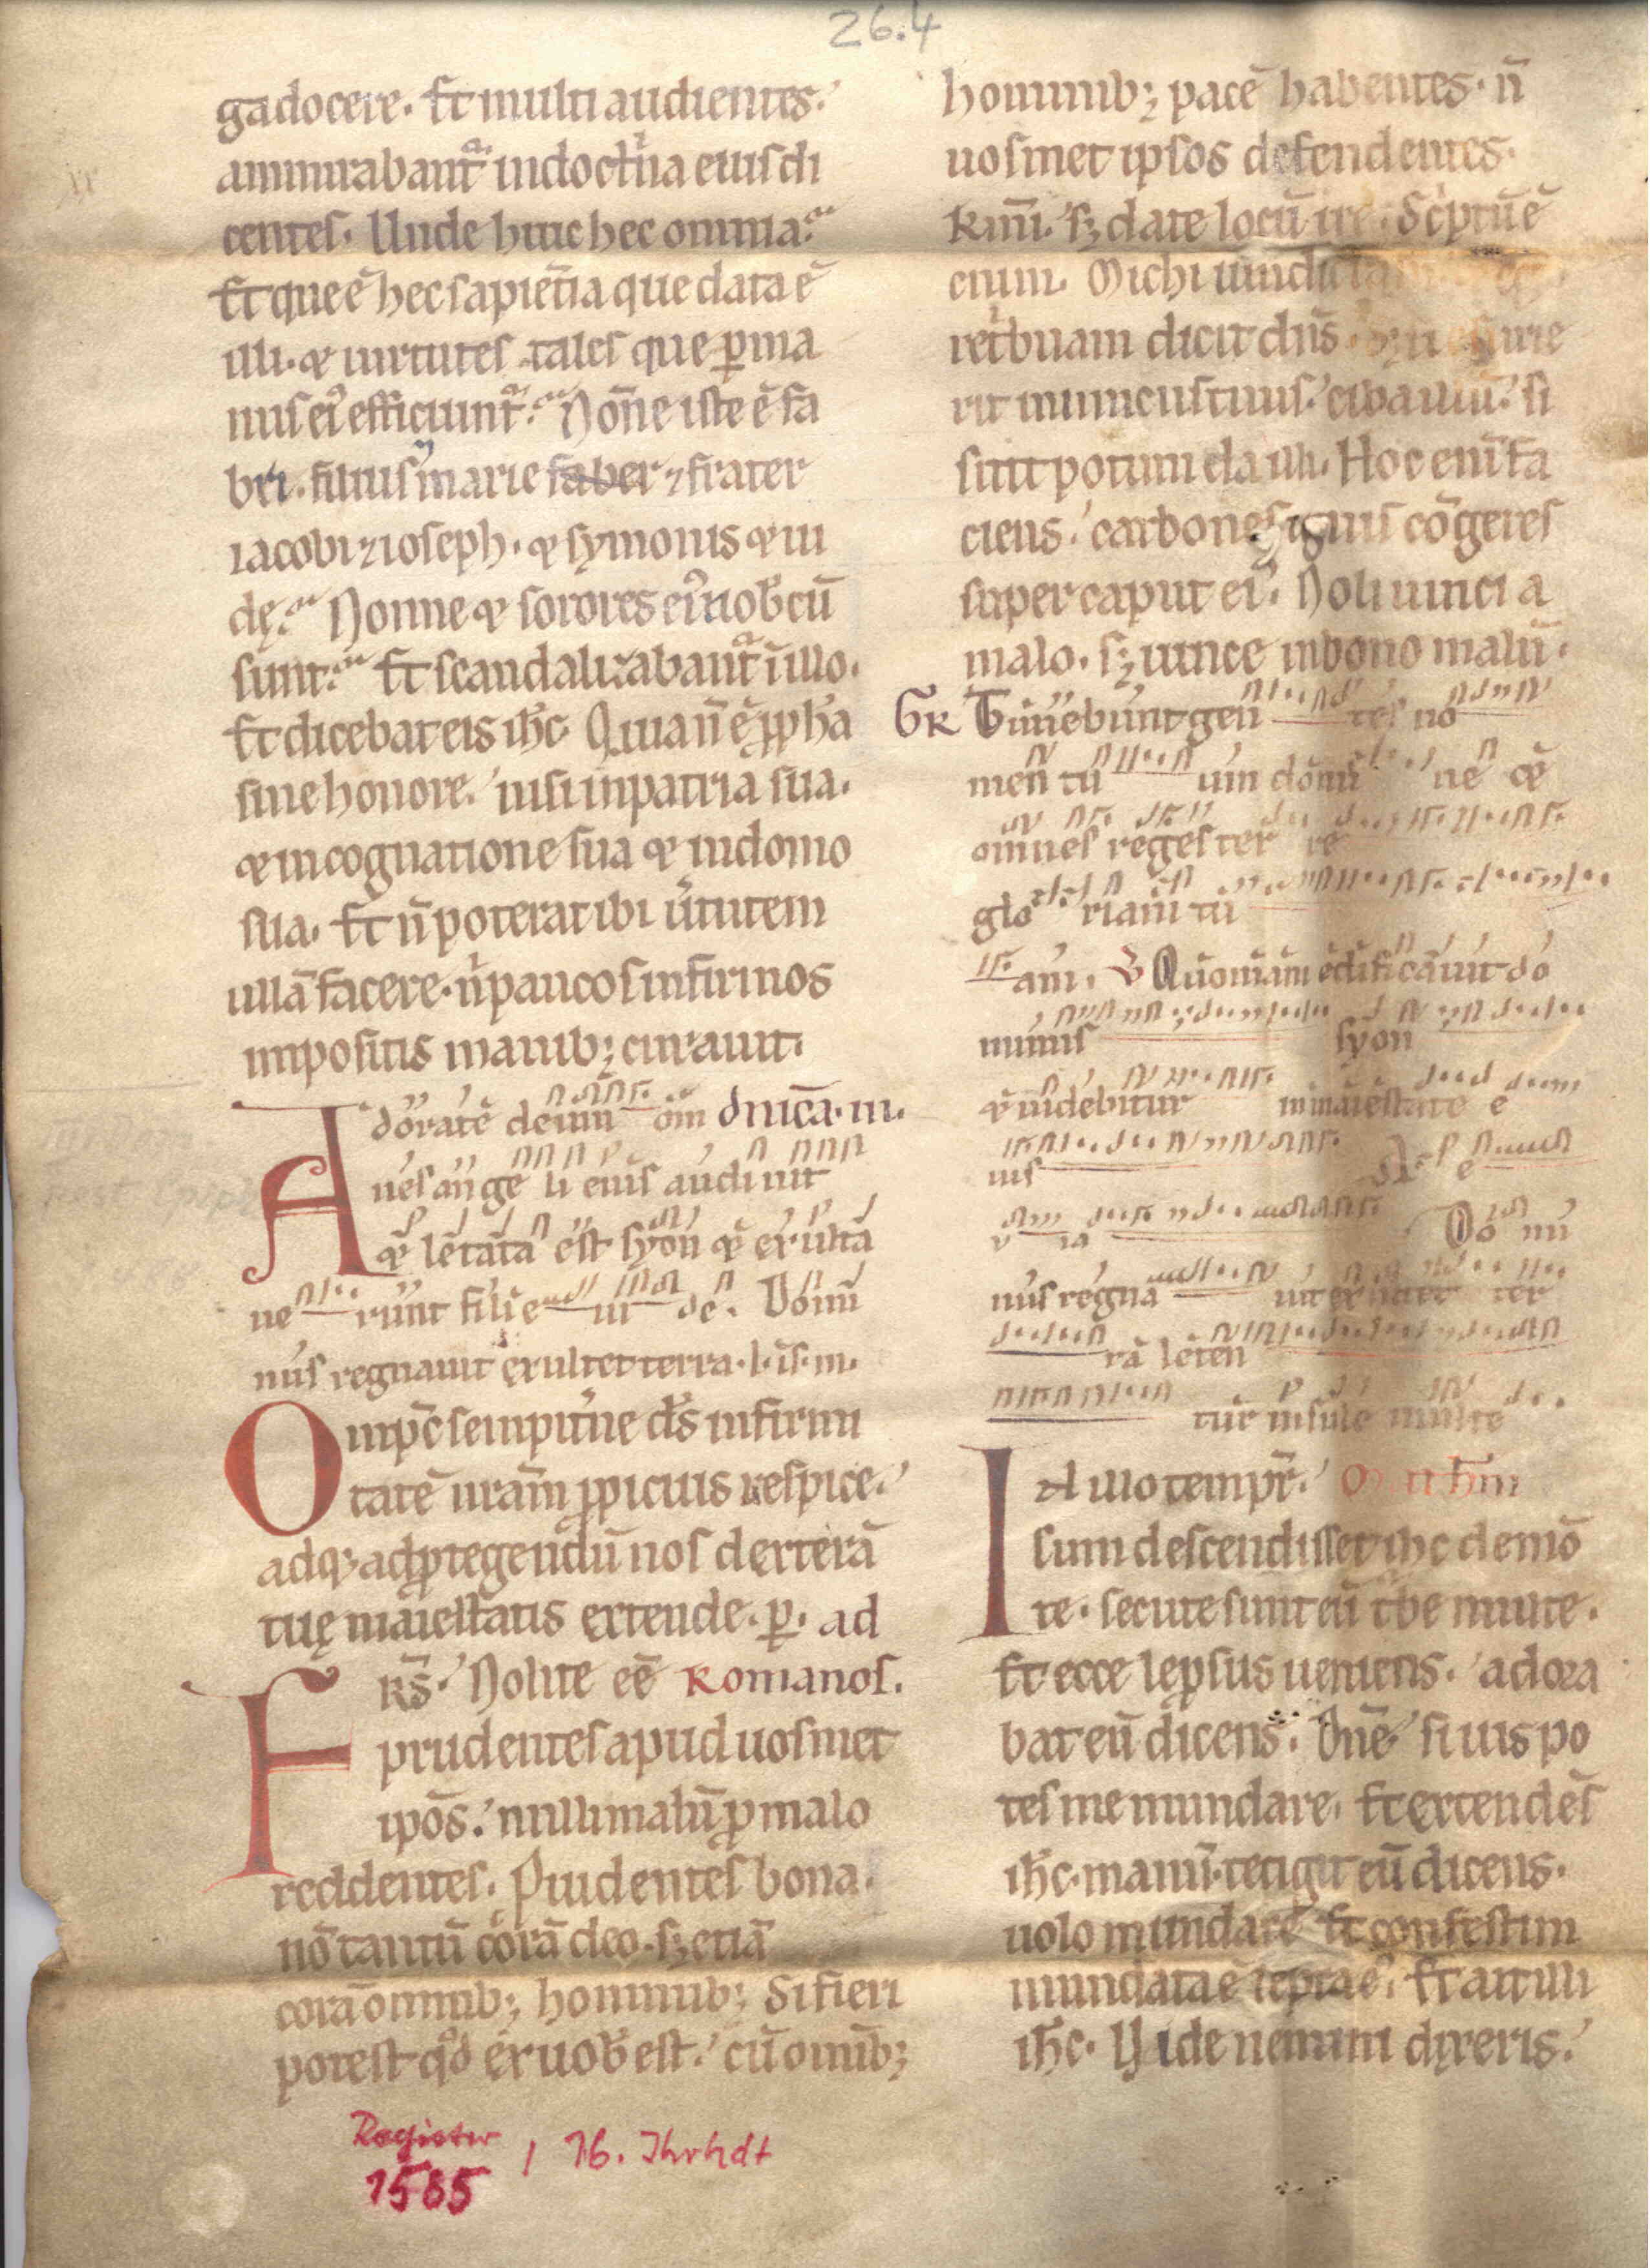 26.4
gadocere. Et multi audientes.
ammirabant᷑ indoctͥna eiusdi
centes. Unde huic hec omnia.
Et que ē hec sapiētia que data ē
illi. ⁊ uirtutes tales que ꝑma
nus eiꝰ efficiunt᷑. Nōne iste ē fa
bri. filius marie faber ⁊ frater
iacobi ⁊ ioseph. ⁊ symonis ⁊ iu
dę. Nonne ⁊ sorores eiꝰ nob̄cū
sunt. Et scandalizabant᷑ īillo.
Et dicebat eis ihc̄. Quia n̄ ē ꝓph̄a
sine honore. nisi inpatria sua.
⁊ incognatione sua ⁊ indomo
sua. Et n̄ poterat ibi uͥtutem
ullā facere. nͥ paucos infirmos
impositis manib; curauit.
Adorate deum om̄ dnīca. III.
nes angeli eius audiuit
⁊ letata est syon ⁊ exulta
ue runt filie iu de. Domi
nus regnauit exultet terra. l. īs. m.
Omp̄c sempit̄ne ds̄ infirmi
tatē nrām ꝓpicius respice.
adq; adꝓtegendū nos dexterā
tuę maiestatis extende. ꝑ. ad
Frs̄. Nolite eē Romanos.
prudentes apud uosmet
ipōs. nulli malū ꝓ malo
reddentes. Prudentes bona.
nō tantū corā deo. sȝ etiā
corā omnib; hominib; Si fieri
potest qͦd ex uob̄ est. cū omīb;
hominib; pacē habentes. n̄
uosmet ipsos defendentes.
kmī. sȝ date locū ire. Scͥptū ē
enim. Michi uindicta
retͥbuam dicit dn̄s. esurie
rit inimicus tuus. ciba illū. si
sitit potum da illi. Hoc enī fa
ciens. carbones ignis cōgeres
super caput eiꝰ. Noli uinci a
malo. sȝ uince inbono malū.
GR Timebunt gen tes no
men tu um domi ne ⁊
omnes reges ter re
glo riam tu
am. V Quoniam edificauit do
minus syon
⁊ uidebitur in maiestate e
ius Al le
v ia Do mi
nus regna uit exultet ter
ra leten
tur insule multe
In illo tempr̄. Mathm̄
sum descendisset ihc̄ demō
te. secute sunt eū tͥbe multe.
Et ecce lepsus ueniens. adora
bat eū dicens. Dn̄e si uis po
tes me mundare. Et extendēs
ihc̄. manū. tetigit eū dicens.
uolo mundare Et confestim
mundata ē lepra eꝰ. Et ait illi
ihc̄. Uide nemini dixeris.
Register
1585 / 16. Jhrhdt